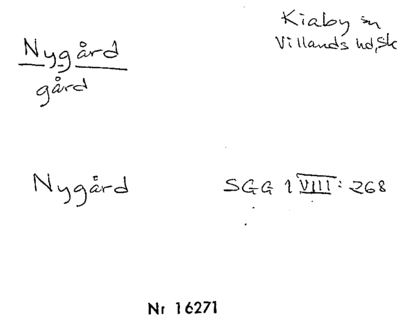 Nygård
gård
Kiaby sn
Villands hd, Sk
Nygård
SGG 1 VIII: 268
Nr 16271